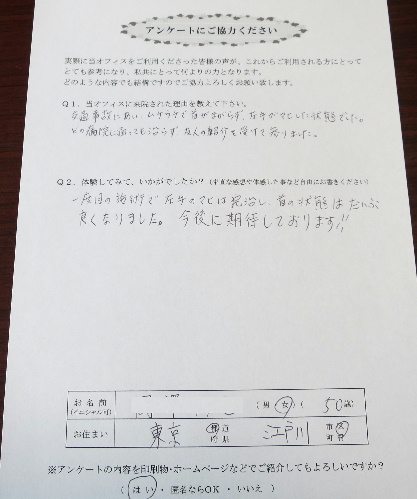 アンケートにご協力ください
実際に当オフィスをご利用くださった皆様の声が、これからご利用される方にとって
とても参考になり、私共にとって何よりの力となります。
どのような内容でも結構ですのでご協力よろしくお願い致します。
Q1、当オフィスに来院された理由を教えて下さい。
交通事故にあい、ムチウチで首がまわらず、左手がマヒした状態でした。
どの病院に通っても治らず 友人の紹介を受けて参りました。
Q2、体験してみて、いかがでしたか？（率直な感想や体感した事など自由にお書きください）
一度目の施術で 左手のマヒは完治し、首の状態はだいぶ
良くなりました。 今後に期待しております!!
お名前 （男 女）（ 50歳）
（イニシャル可）
お住まい 東京 都 道 府 県 江戸川 市 区 町 村
※アンケートの内容を印刷物・ホームページなどでご紹介してもよろしいですか？
（ はい ・ 匿名ならOK ・ いいえ ）